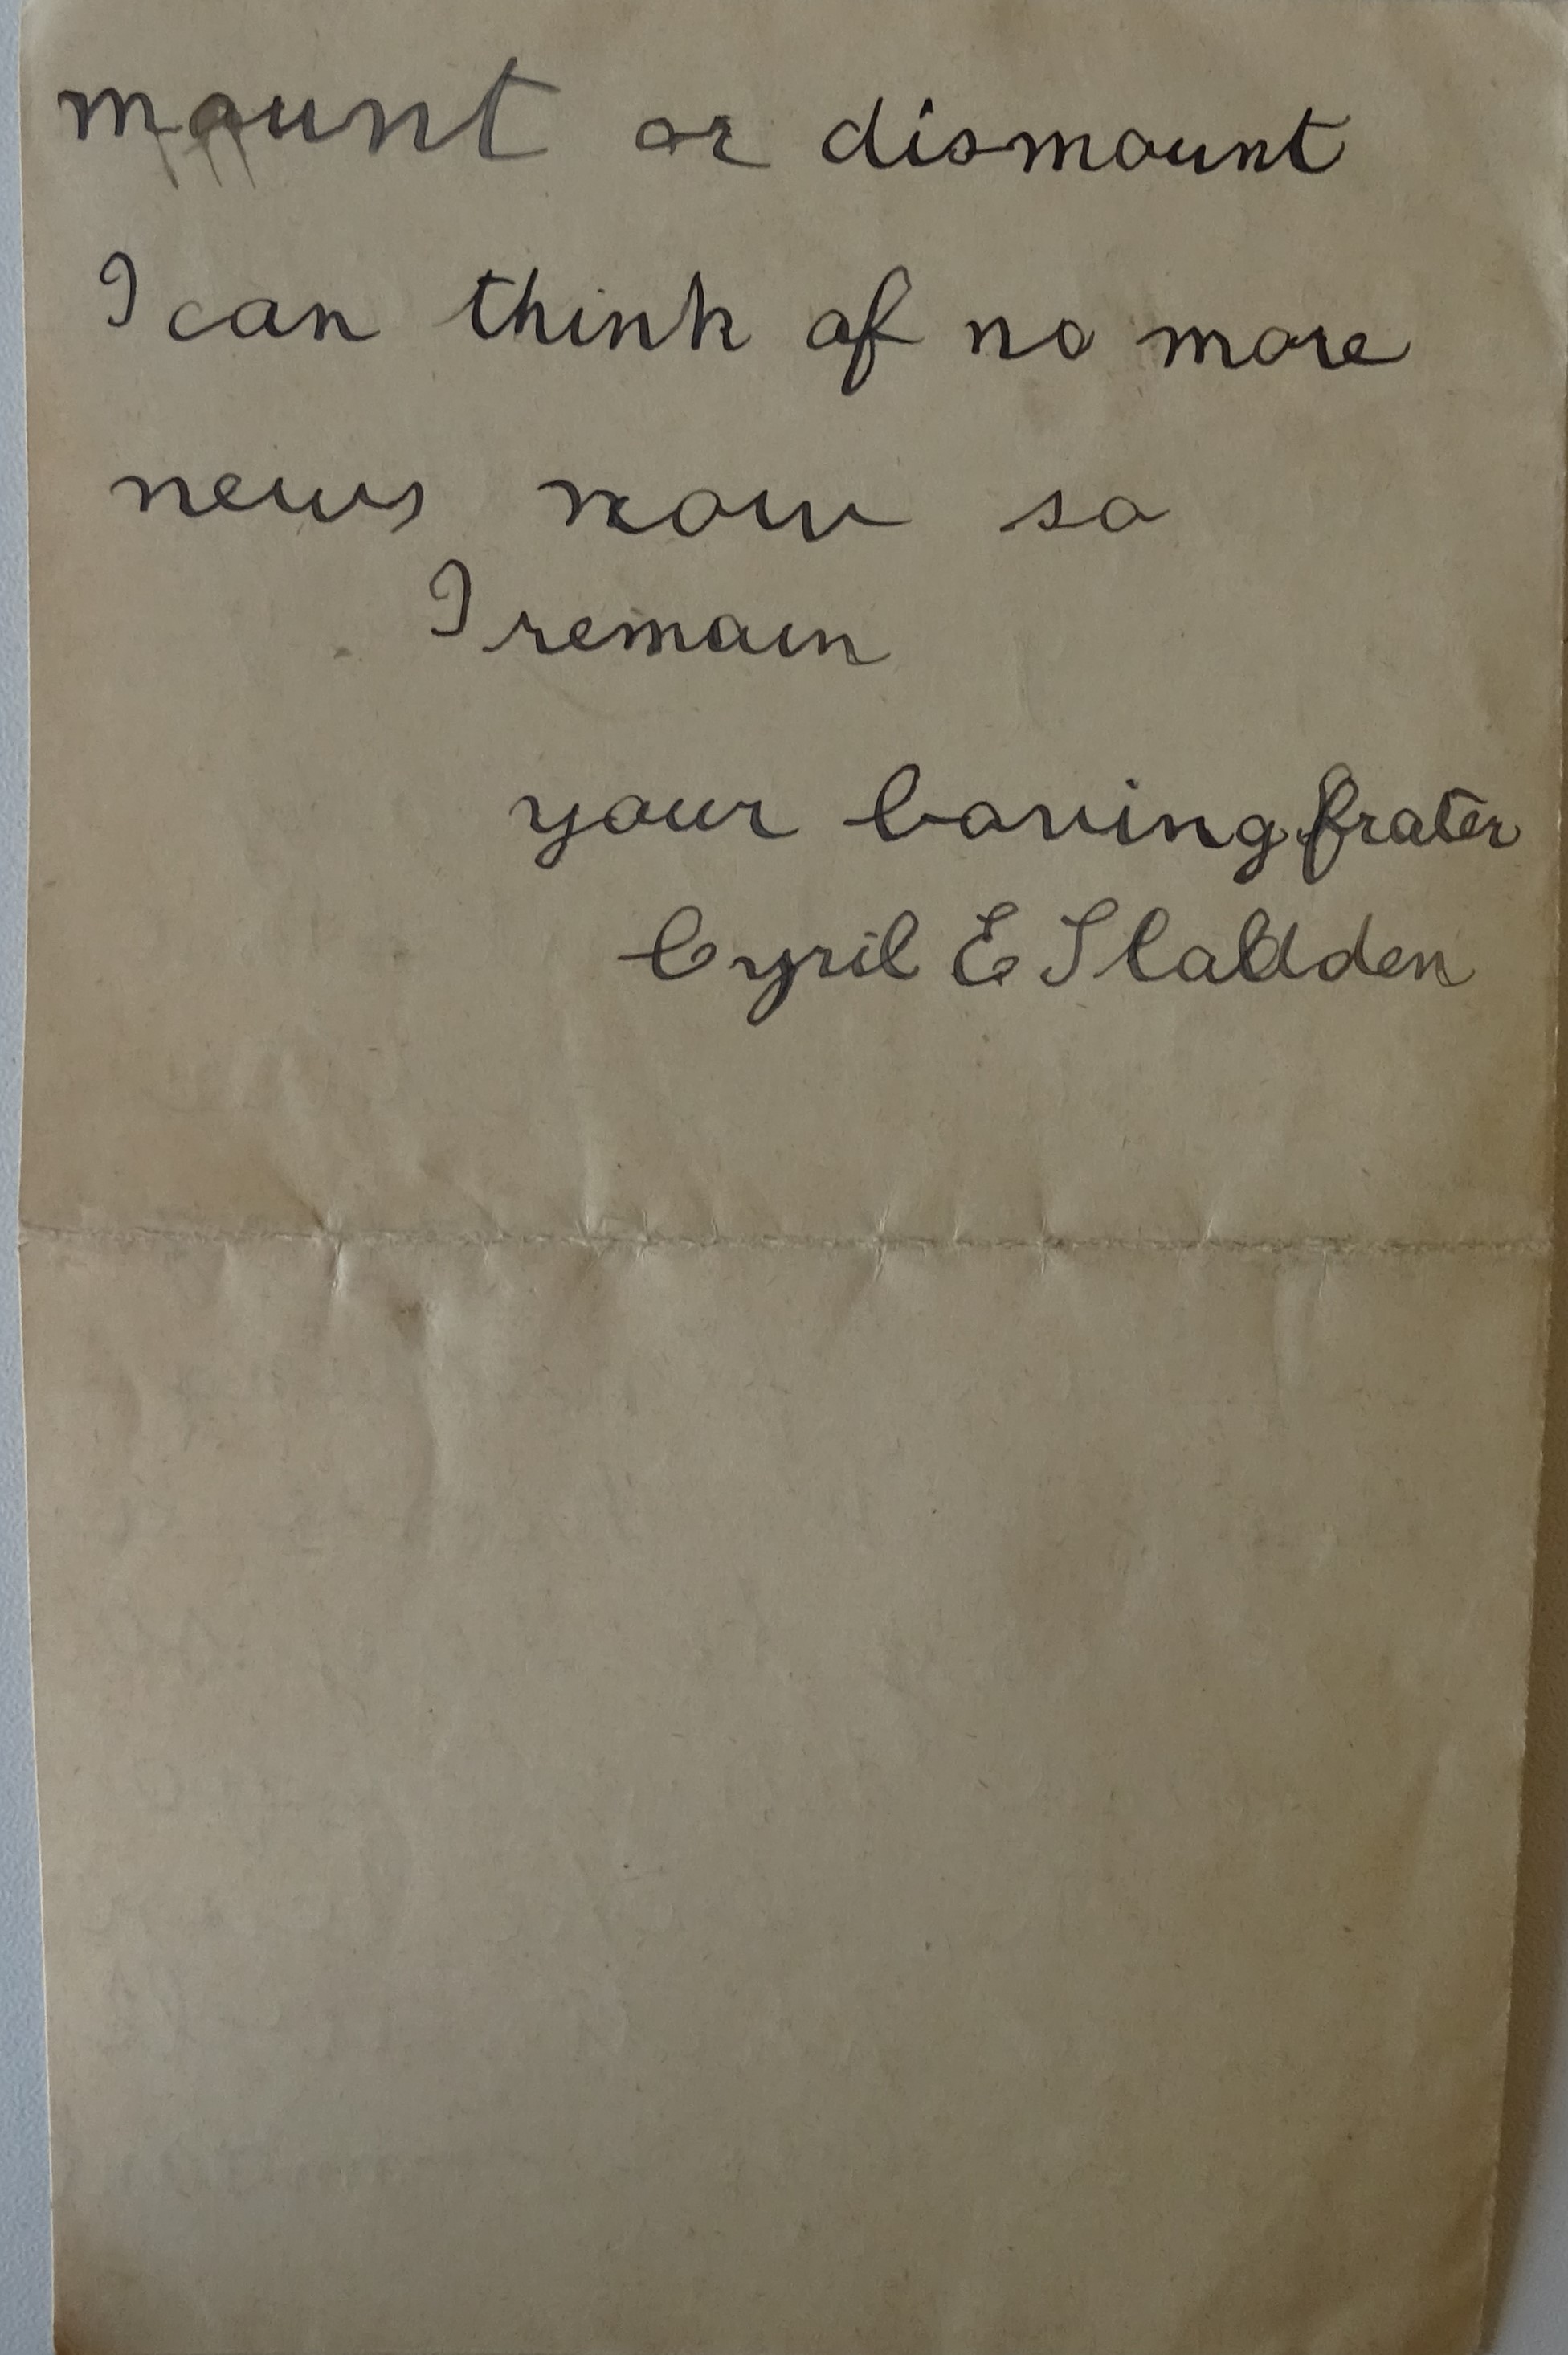 mount or dismount
I can think of no more
news now so
I remain
your loving frater
Cyril E Sladden